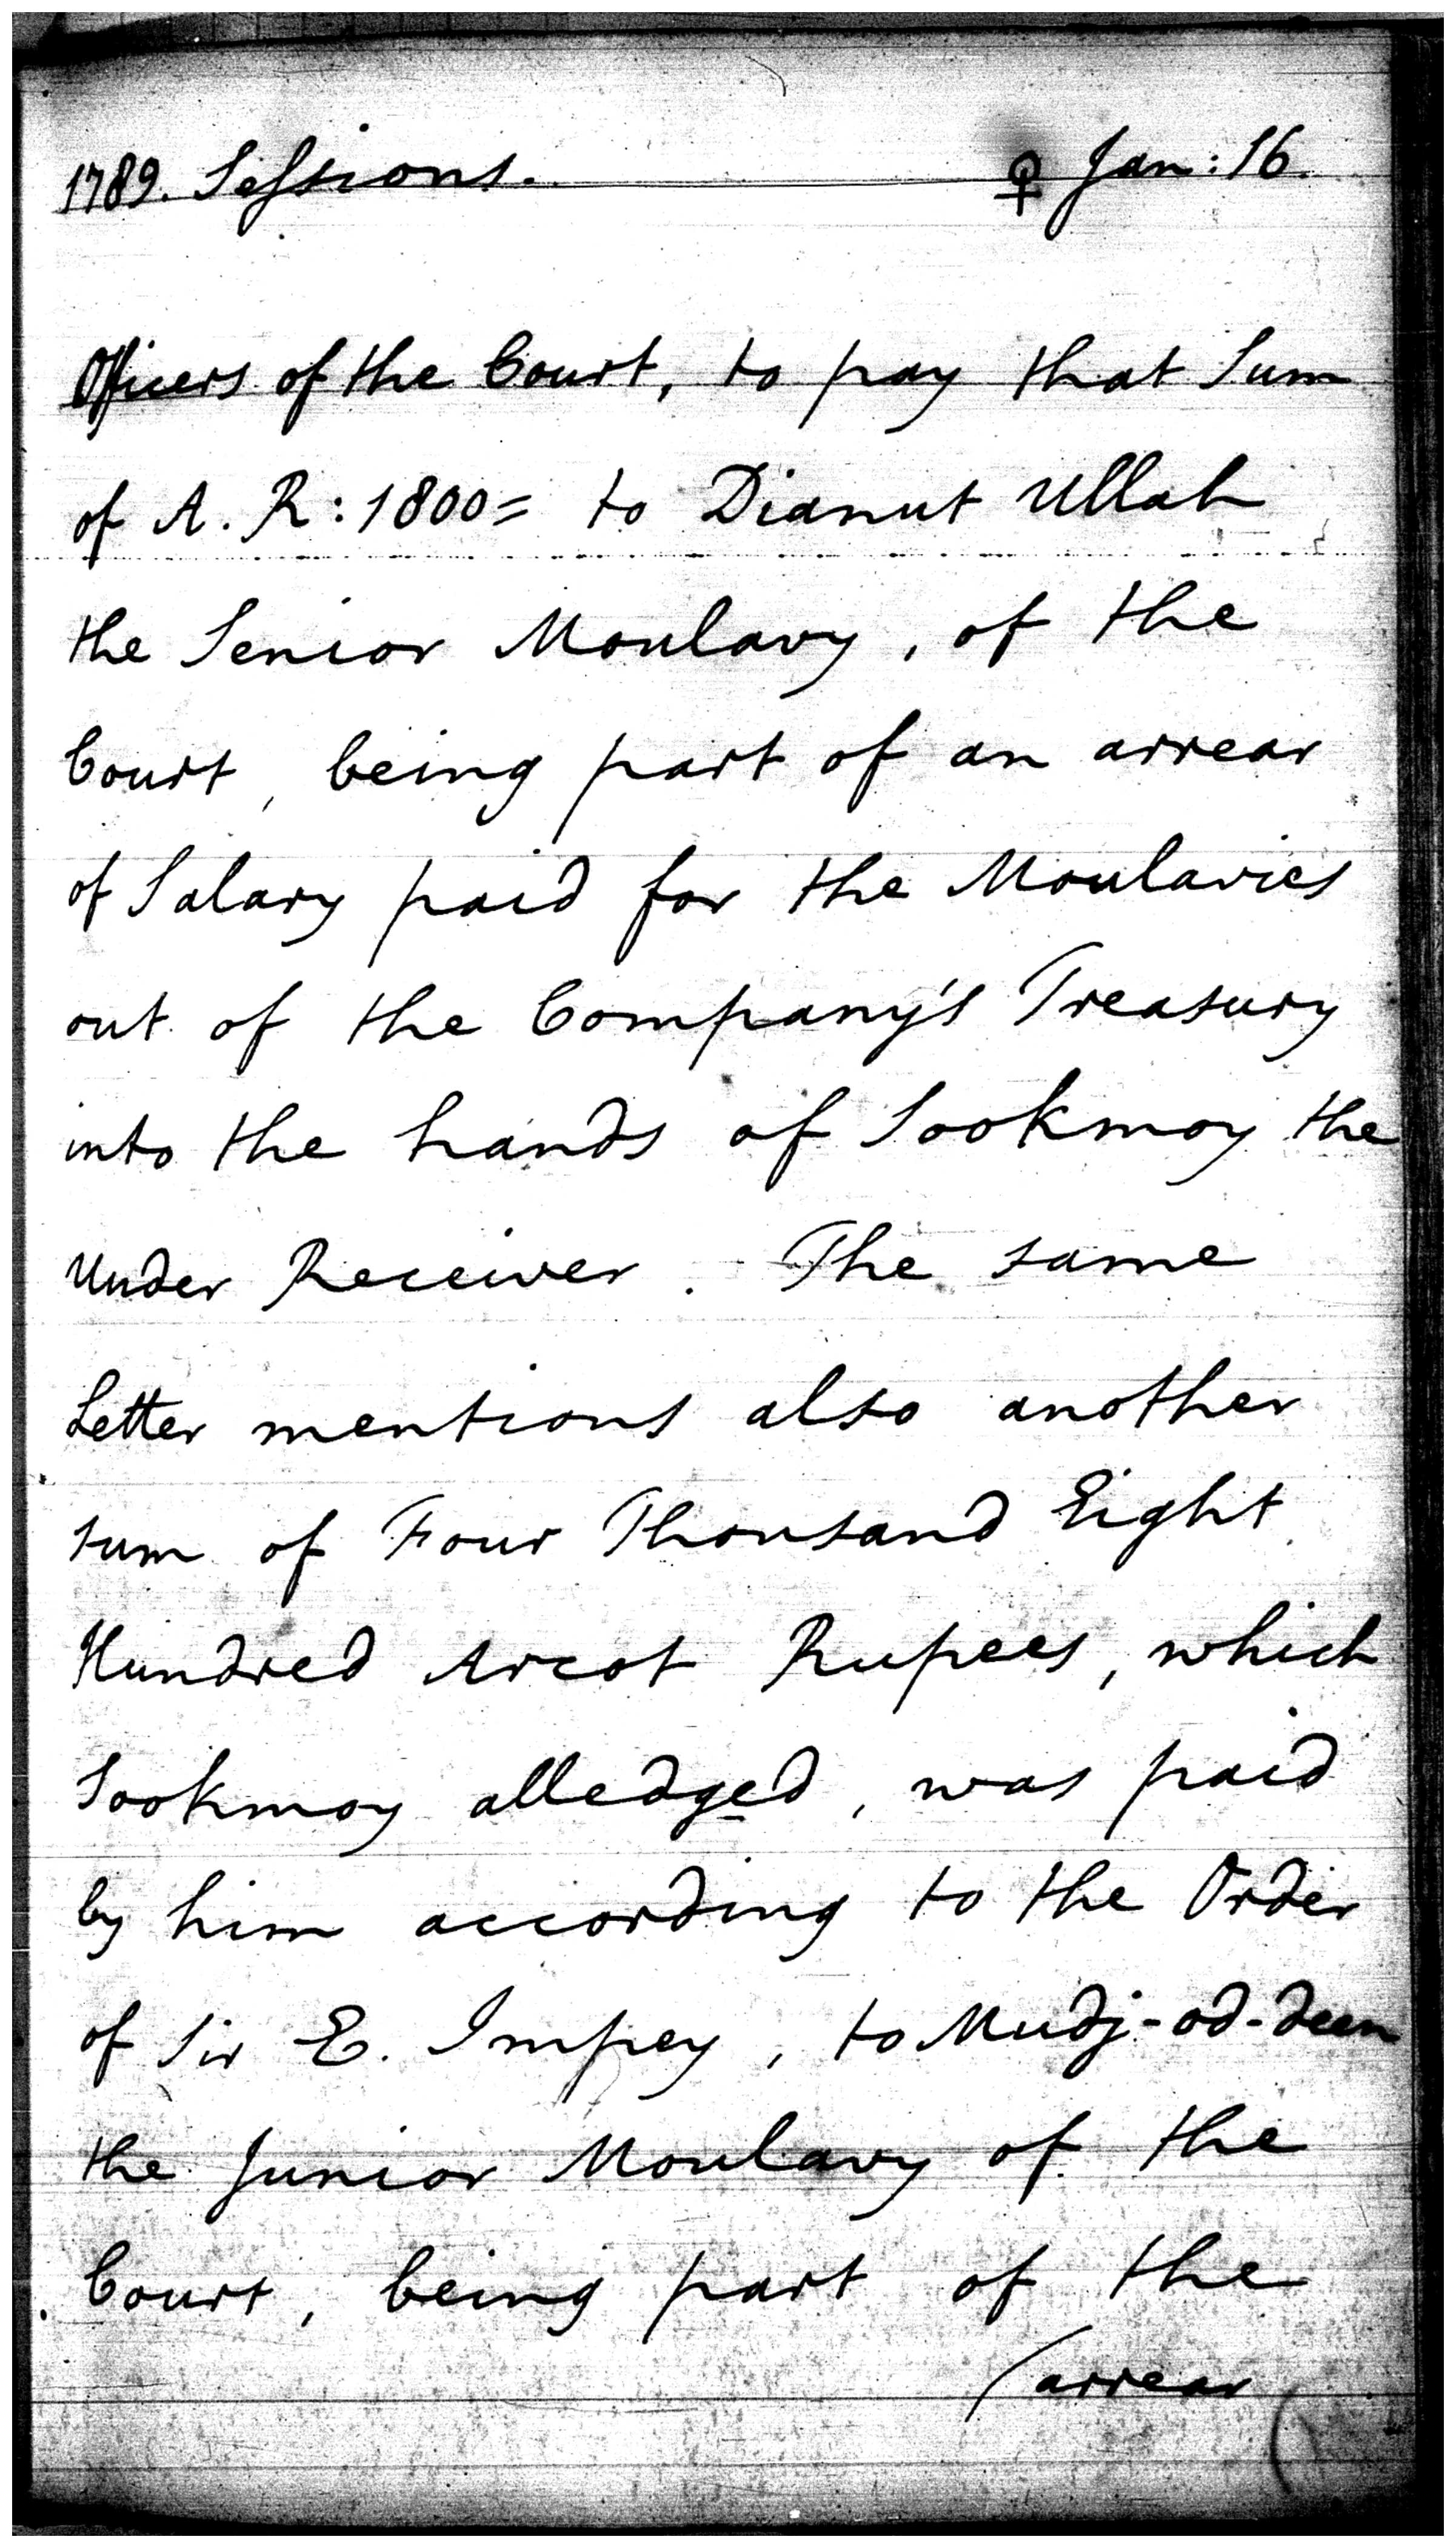 1789. Sessions. ♀ Jan: 16.
Officers of the Court, to pay that Sum
of A. R: 1800= to Dianut Ullah
the Senior Moulavy, of the
Court, being part of an arrear
of Salary paid for the Moulavies
out of the Company's Treasury
into the hands of Sookmoy the
Under Receiver. The same
Letter mentions also another
sum of Four Thousand Eight
Hundred Arcot Rupees, which
Sookmoy alledged, was paid
by him according to the Order
of Sir E. Impey, to Mudj-od-deen
the Junior Moulavy of the
Court, being part of the
(arrear